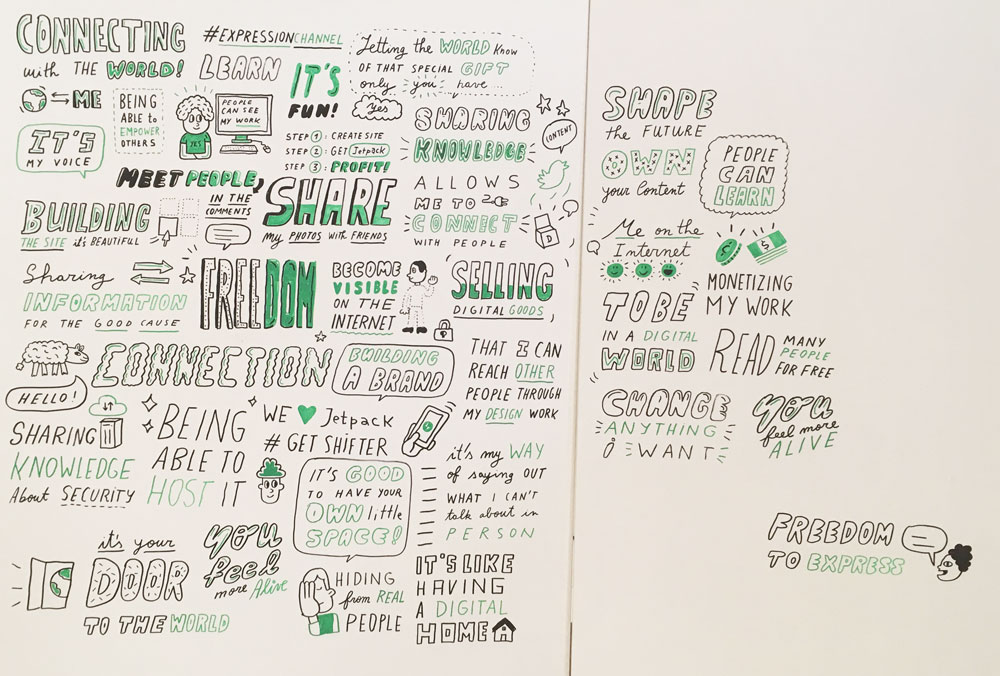 CONNECTING
with THE WORLD!
ME
IT'S
MY VOICE
BEING
ABLE to
EMPOWER
OTHERS
#EXPRESSIONCHANNEL
LEARN
YES
PEOPLE
CAN SEE
MY WORK
IT'S
FUN!
Letting the WORLD Know
OF THAT SPECIAL GIFT
only you have...
Yes
STEP 1: CREATE SITE
STEP 2: GET Jetpack
STEP 3: PROFIT!
SHARING
KNOWLEDGE
ALLOWS
ME TO
CONNECT
WITH PEOPLE
CONTENT
D
MEET PEOPLE,
IN THE
COMMENTS
BUILDING
THE SITE it's BEAUTIFUL
SHARE
my PHOTOS with FRIENDS
Sharing
INFORMATION
FOR THE GOOD CAUSE
FREEDOM
BECOME
VISIBLE
ON THE
INTERNET
SELLING
DIGITAL GOODS
CONNECTION
HELLO!
BUILDING
A BRAND
THAT I CAN
REACH OTHER
PEOPLE THROUGH
MY DESIGN WORK
SHARING
KNOWLEDGE
About SECURITY
BEING
ABLE TO
HOST IT
WE Jetpack
# GET SHIFTER
IT'S GOOD
TO HAVE YOUR
OWN little
SPACE!
it's my WAY
of saying OUT
WHAT I CAN'T
talk about in
PERSON
it's your
DOOR
TO THE WORLD
you
feel
more Alive
HIDING
from REAL
PEOPLE
IT'S LIKE
HAVING
A DIGITAL
HOME
SHAPE
the FUTURE
OWN
your Content
PEOPLE
CAN
LEARN
Me on the
Internet
$
MONETIZING
MY WORK
TO BE
IN A DIGITAL
WORLD
READ MANY
PEOPLE
FOR FREE
CHANGE
ANYTHING
i WANT
you
feel more
ALIVE
FREEDOM
TO EXPRESS